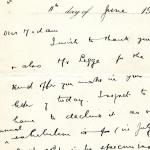 11th day of June 19
Dear Madam
I wish to thank you
& also Mr. Legge for the
kind offer you make in your
letter of today. I regret to
have to decline it as
annual exhibition is for in July